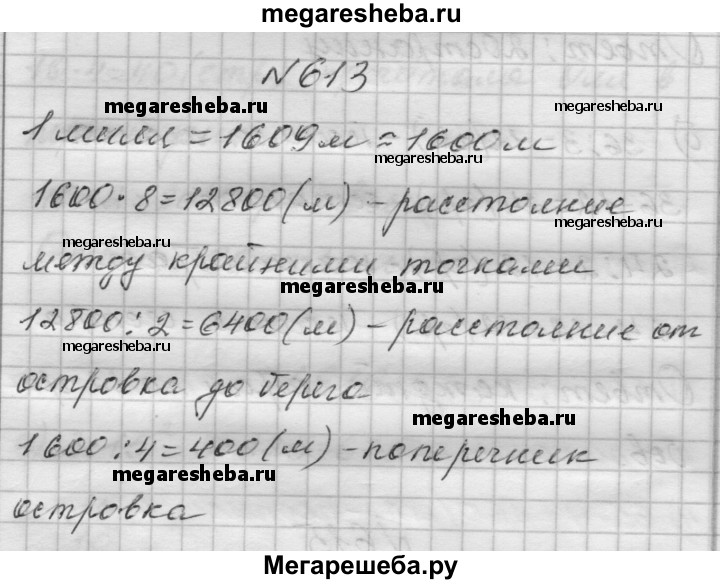 megaresheba.ru
№613
megaresheba.ru
1 миля = 1609 м ≈ 1600 м
megaresheba.ru
1600 · 8 = 12800 (м) – расстояние
megaresheba.ru
между крайними точками
megaresheba.ru
12800 : 2 = 6400 (м) – расстояние от
megaresheba.ru
островка до берега
megaresheba.ru
1600 : 4 = 400 (м) – поперечник
megaresheba.ru
островка
Мегарешеба.ру